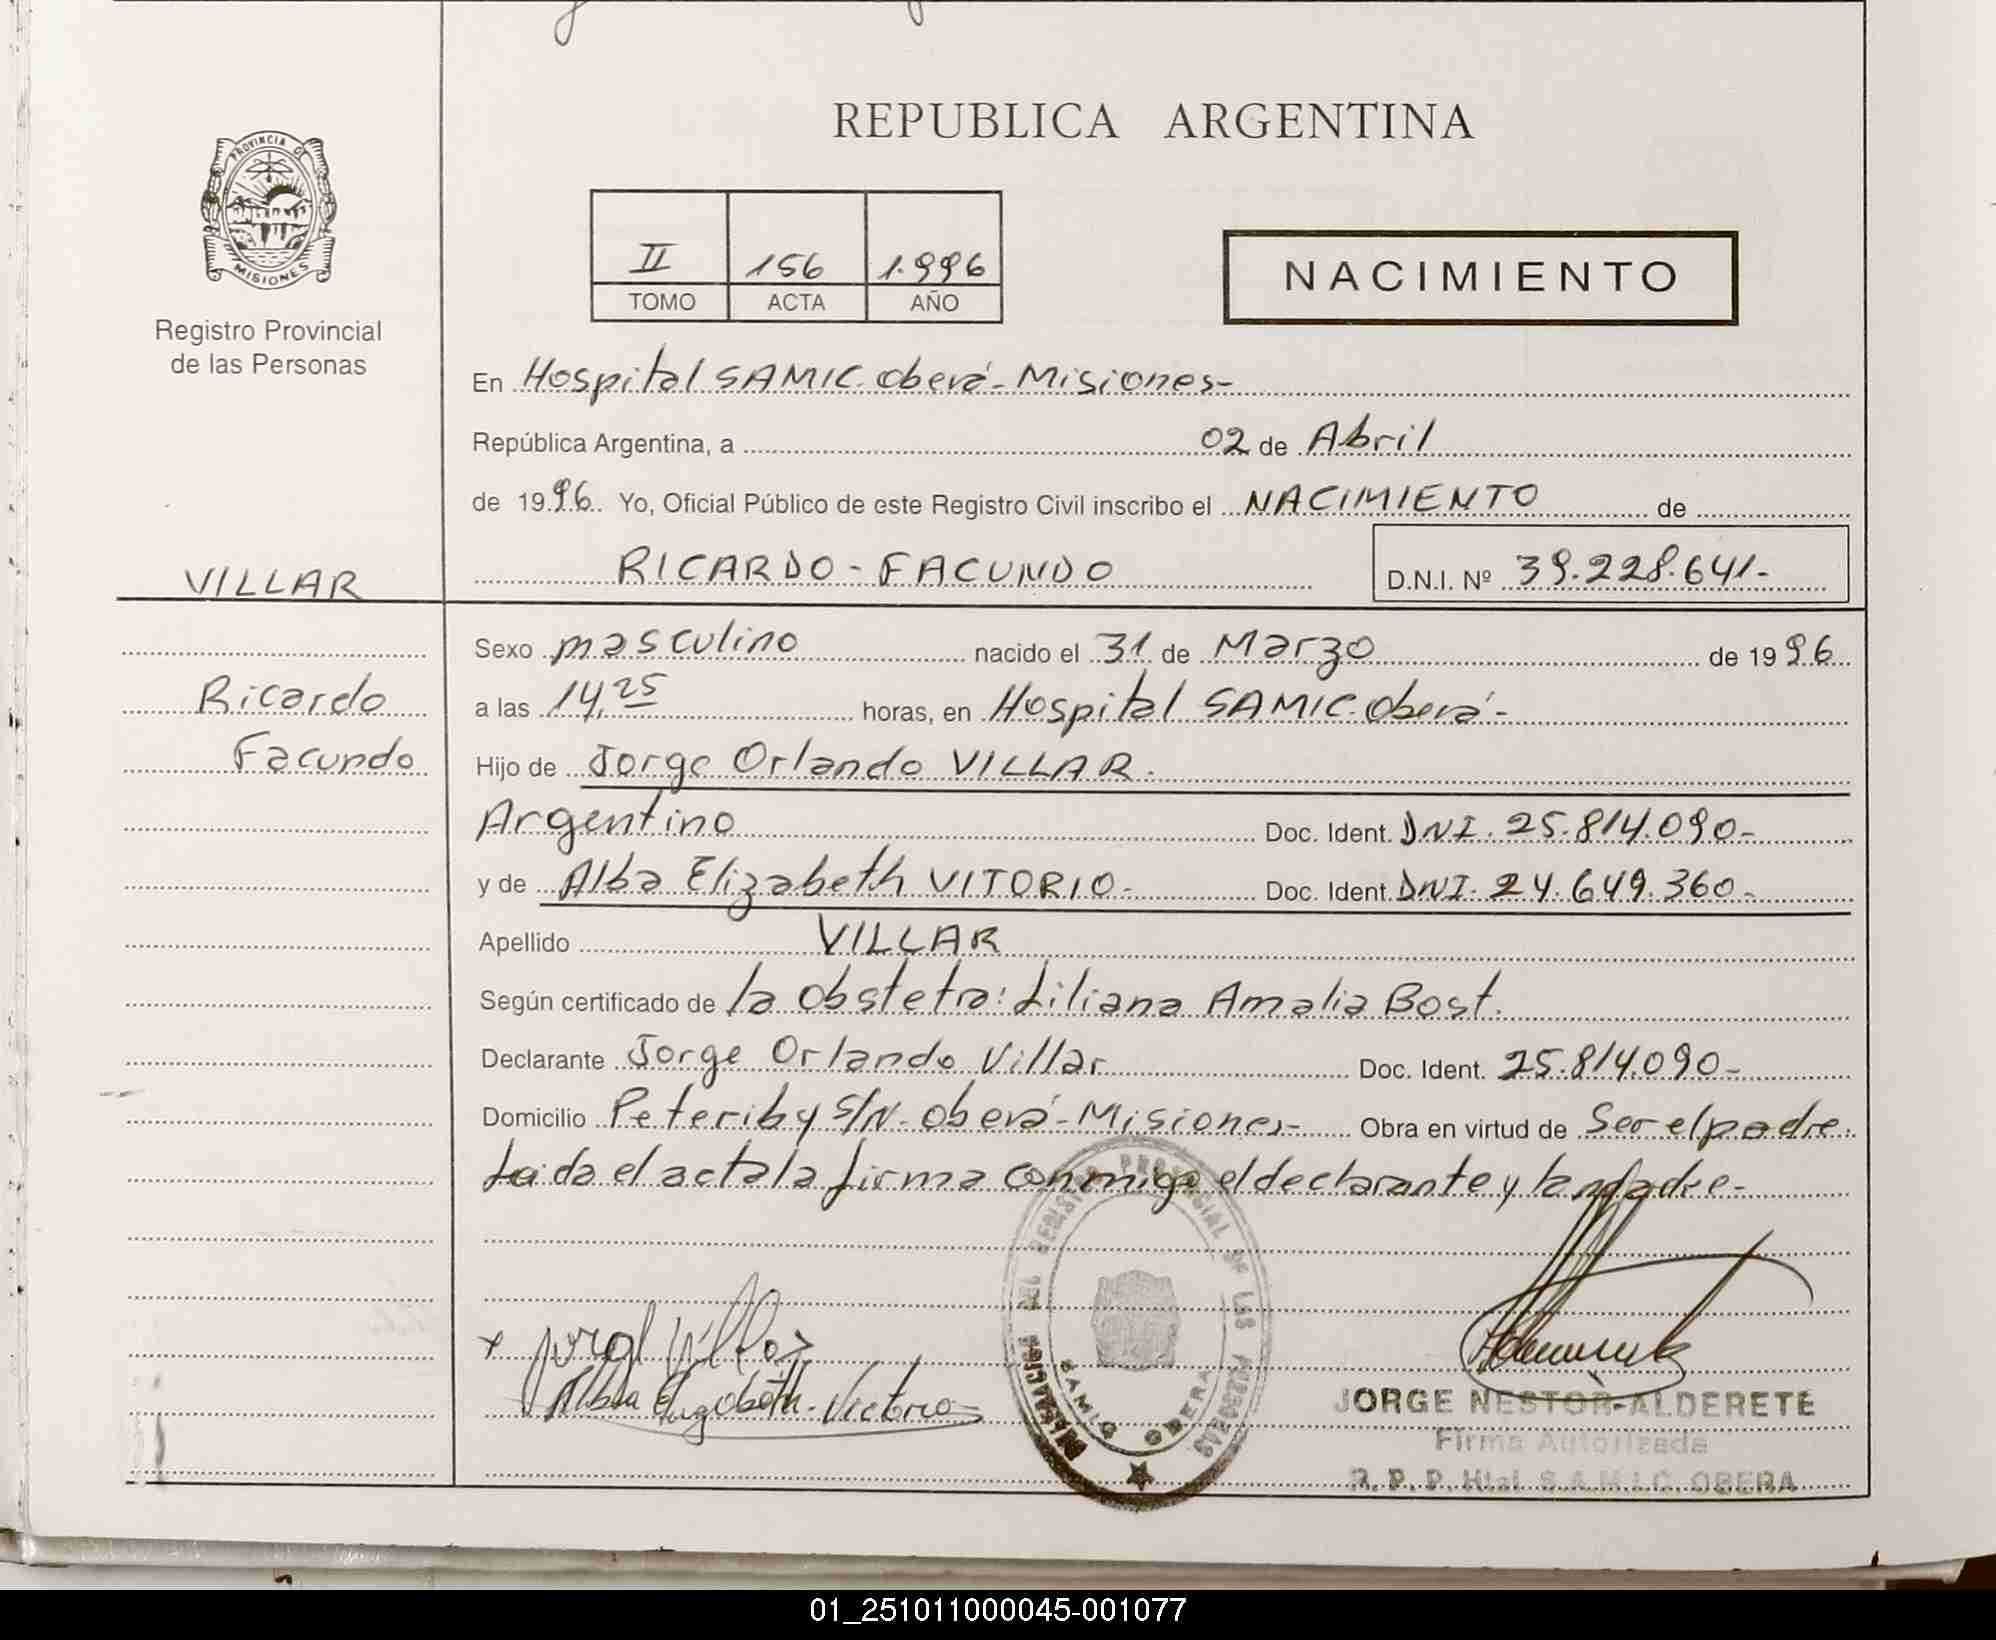 REPUBLICA ARGENTINA
PROVINCIA DE
MISIONES
Registro Provincial
de las Personas
II 156 1.996
TOMO ACTA AÑO
NACIMIENTO
En Hospital SAMIC. Oberá - Misiones -
República Argentina, a 02 de Abril
de 1996. Yo, Oficial Público de este Registro Civil inscribo el NACIMIENTO de
VILLAR
RICARDO - FACUNDO D.N.I. Nº 39.228.641.-
Ricardo
Facundo
Sexo masculino nacido el 31 de Marzo de 1996
a las 14,25 horas, en Hospital SAMIC. Oberá -
Hijo de Jorge Orlando VILLAR.
Argentino Doc. Ident. DNI. 25.814.090-
y de Alba Elizabeth VITORIO.- Doc. Ident. DNI. 24.649.360-
Apellido VILLAR
Según certificado de la obstetra: Liliana Amalia Bost.
Declarante Jorge Orlando Villar Doc. Ident. 25.814.090-
Domicilio Peteriby S/N - Oberá - Misiones - Obra en virtud de Ser el padre.
Leida el acta la firma conmigo el declarante y la madre -
REGISTRO PROVINCIAL DE LAS PERSONAS
SAMIC OBERA
Alba Elizabeth
JORGE NESTOR ALDERETE
Firma Autorizada
R. P. P. Htal. S.A.M.I.C. OBERA
01_251011000045-001077